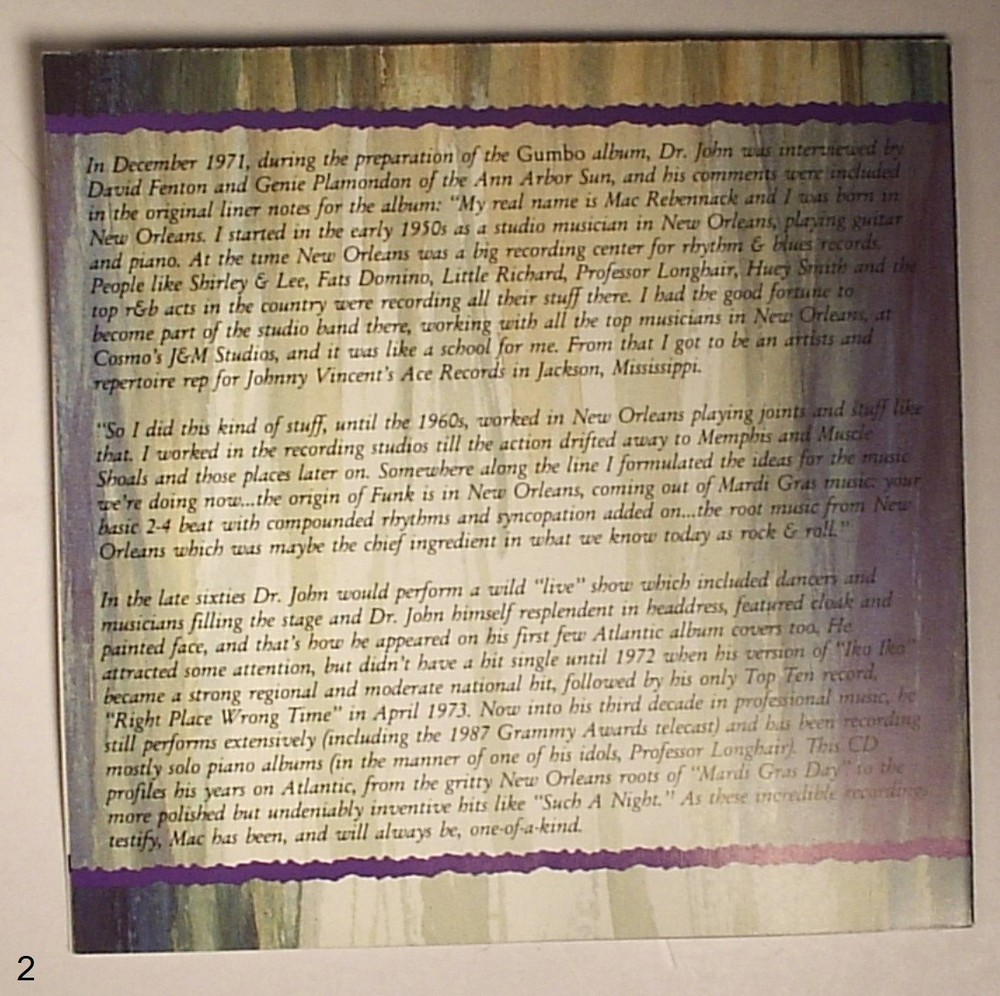 In December 1971, during the preparation of the Gumbo album, Dr. John was interviewed by
David Fenton and Genie Plamondon of the Ann Arbor Sun, and his comments were included
in the original liner notes for the album: "My real name is Mac Rebennack and I was born in
New Orleans. I started in the early 1950s as a studio musician in New Orleans, playing guitar
and piano. At the time New Orleans was a big recording center for rhythm & blues records.
People like Shirley & Lee, Fats Domino, Little Richard, Professor Longhair, Huey Smith and the
top r&b acts in the country were recording all their stuff there. I had the good fortune to
become part of the studio band there, working with all the top musicians in New Orleans, at
Cosmo's J&M Studios, and it was like a school for me. From that I got to be an artists and
repertoire rep for Johnny Vincent's Ace Records in Jackson, Mississippi.
"So I did this kind of stuff, until the 1960s, worked in New Orleans playing joints and stuff like
that. I worked in the recording studios till the action drifted away to Memphis and Muscle
Shoals and those places later on. Somewhere along the line I formulated the ideas for the music
we're doing now...the origin of Funk is in New Orleans, coming out of Mardi Gras music: your
basic 2-4 beat with compounded rhythms and syncopation added on...the root music from New
Orleans which was maybe the chief ingredient in what we know today as rock & roll."
In the late sixties Dr. John would perform a wild "live" show which included dancers and
musicians filling the stage and Dr. John himself resplendent in headdress, featured cloak and
painted face, and that's how he appeared on his first few Atlantic album covers too. He
attracted some attention, but didn't have a hit single until 1972 when his version of "Iko Iko"
became a strong regional and moderate national hit, followed by his only Top Ten record,
"Right Place Wrong Time" in April 1973. Now into his third decade in professional music, he
still performs extensively (including the 1987 Grammy Awards telecast) and has been recording
mostly solo piano albums (in the manner of one of his idols, Professor Longhair). This CD
profiles his years on Atlantic, from the gritty New Orleans roots of "Mardi Gras Day" to the
more polished but undeniably inventive hits like "Such A Night." As these incredible recordings
testify, Mac has been, and will always be, one-of-a-kind.
2